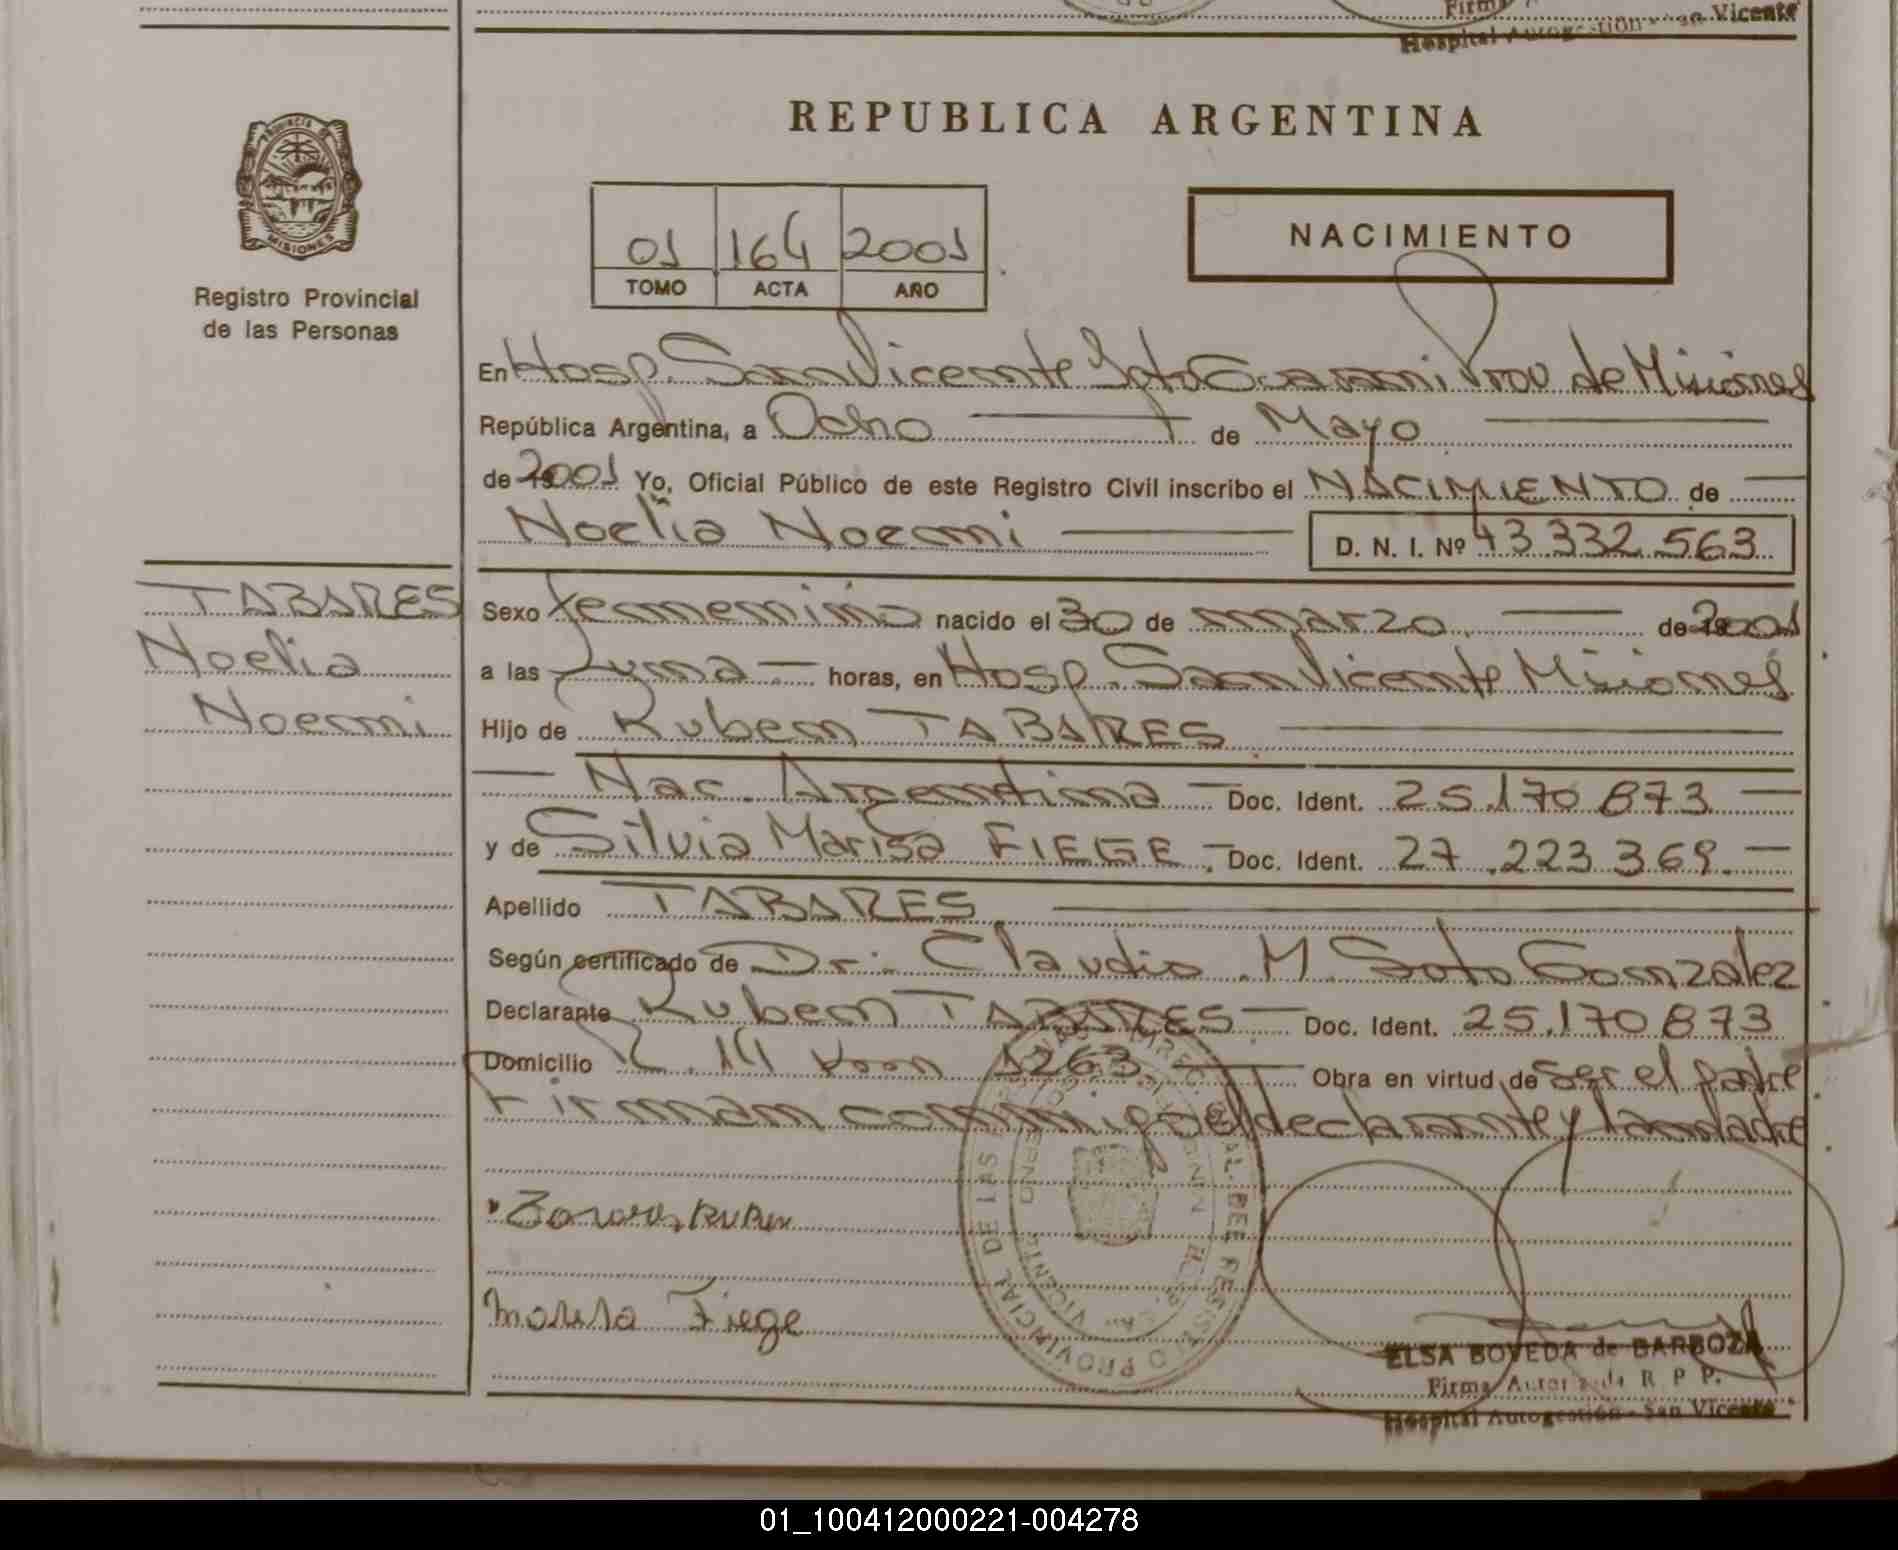 Firma
San Vicente
Hospital Autogestión
REPUBLICA ARGENTINA
PROVINCIA DE
MISIONES
Registro Provincial
de las Personas
01 164 2001
TOMO ACTA AÑO
NACIMIENTO
En Hosp. San Vicente Dpto Guarani Prov de Misiones
República Argentina, a Ocho de Mayo
de 2001 Yo, Oficial Público de este Registro Civil inscribo el NACIMIENTO de
Noelia Noemi D. N. I. Nº 43 332 563
TABARES
Noelia
Noemi
Sexo femenino nacido el 30 de marzo de 2001
a las una horas, en Hosp. San Vicente Misiones
Hijo de Ruben TABARES
Nac. Argentina Doc. Ident. 25.170 873
y de Silvia Marisa FIEGE Doc. Ident. 27.223 369.
Apellido TABARES
Según certificado de Dr. Claudio M. Soto Gonzalez
Declarante Ruben TABARES Doc. Ident. 25.170 873
Domicilio Km 1263 Obra en virtud de ser el padre
Firman conmigo el declarante y la madre
Ruben
Marisa Fiege
ELSA BOVEDA de BARBOZA
Firma Autorizada R P P.
Hospital Autogestión - San Vicente
01_100412000221-004278